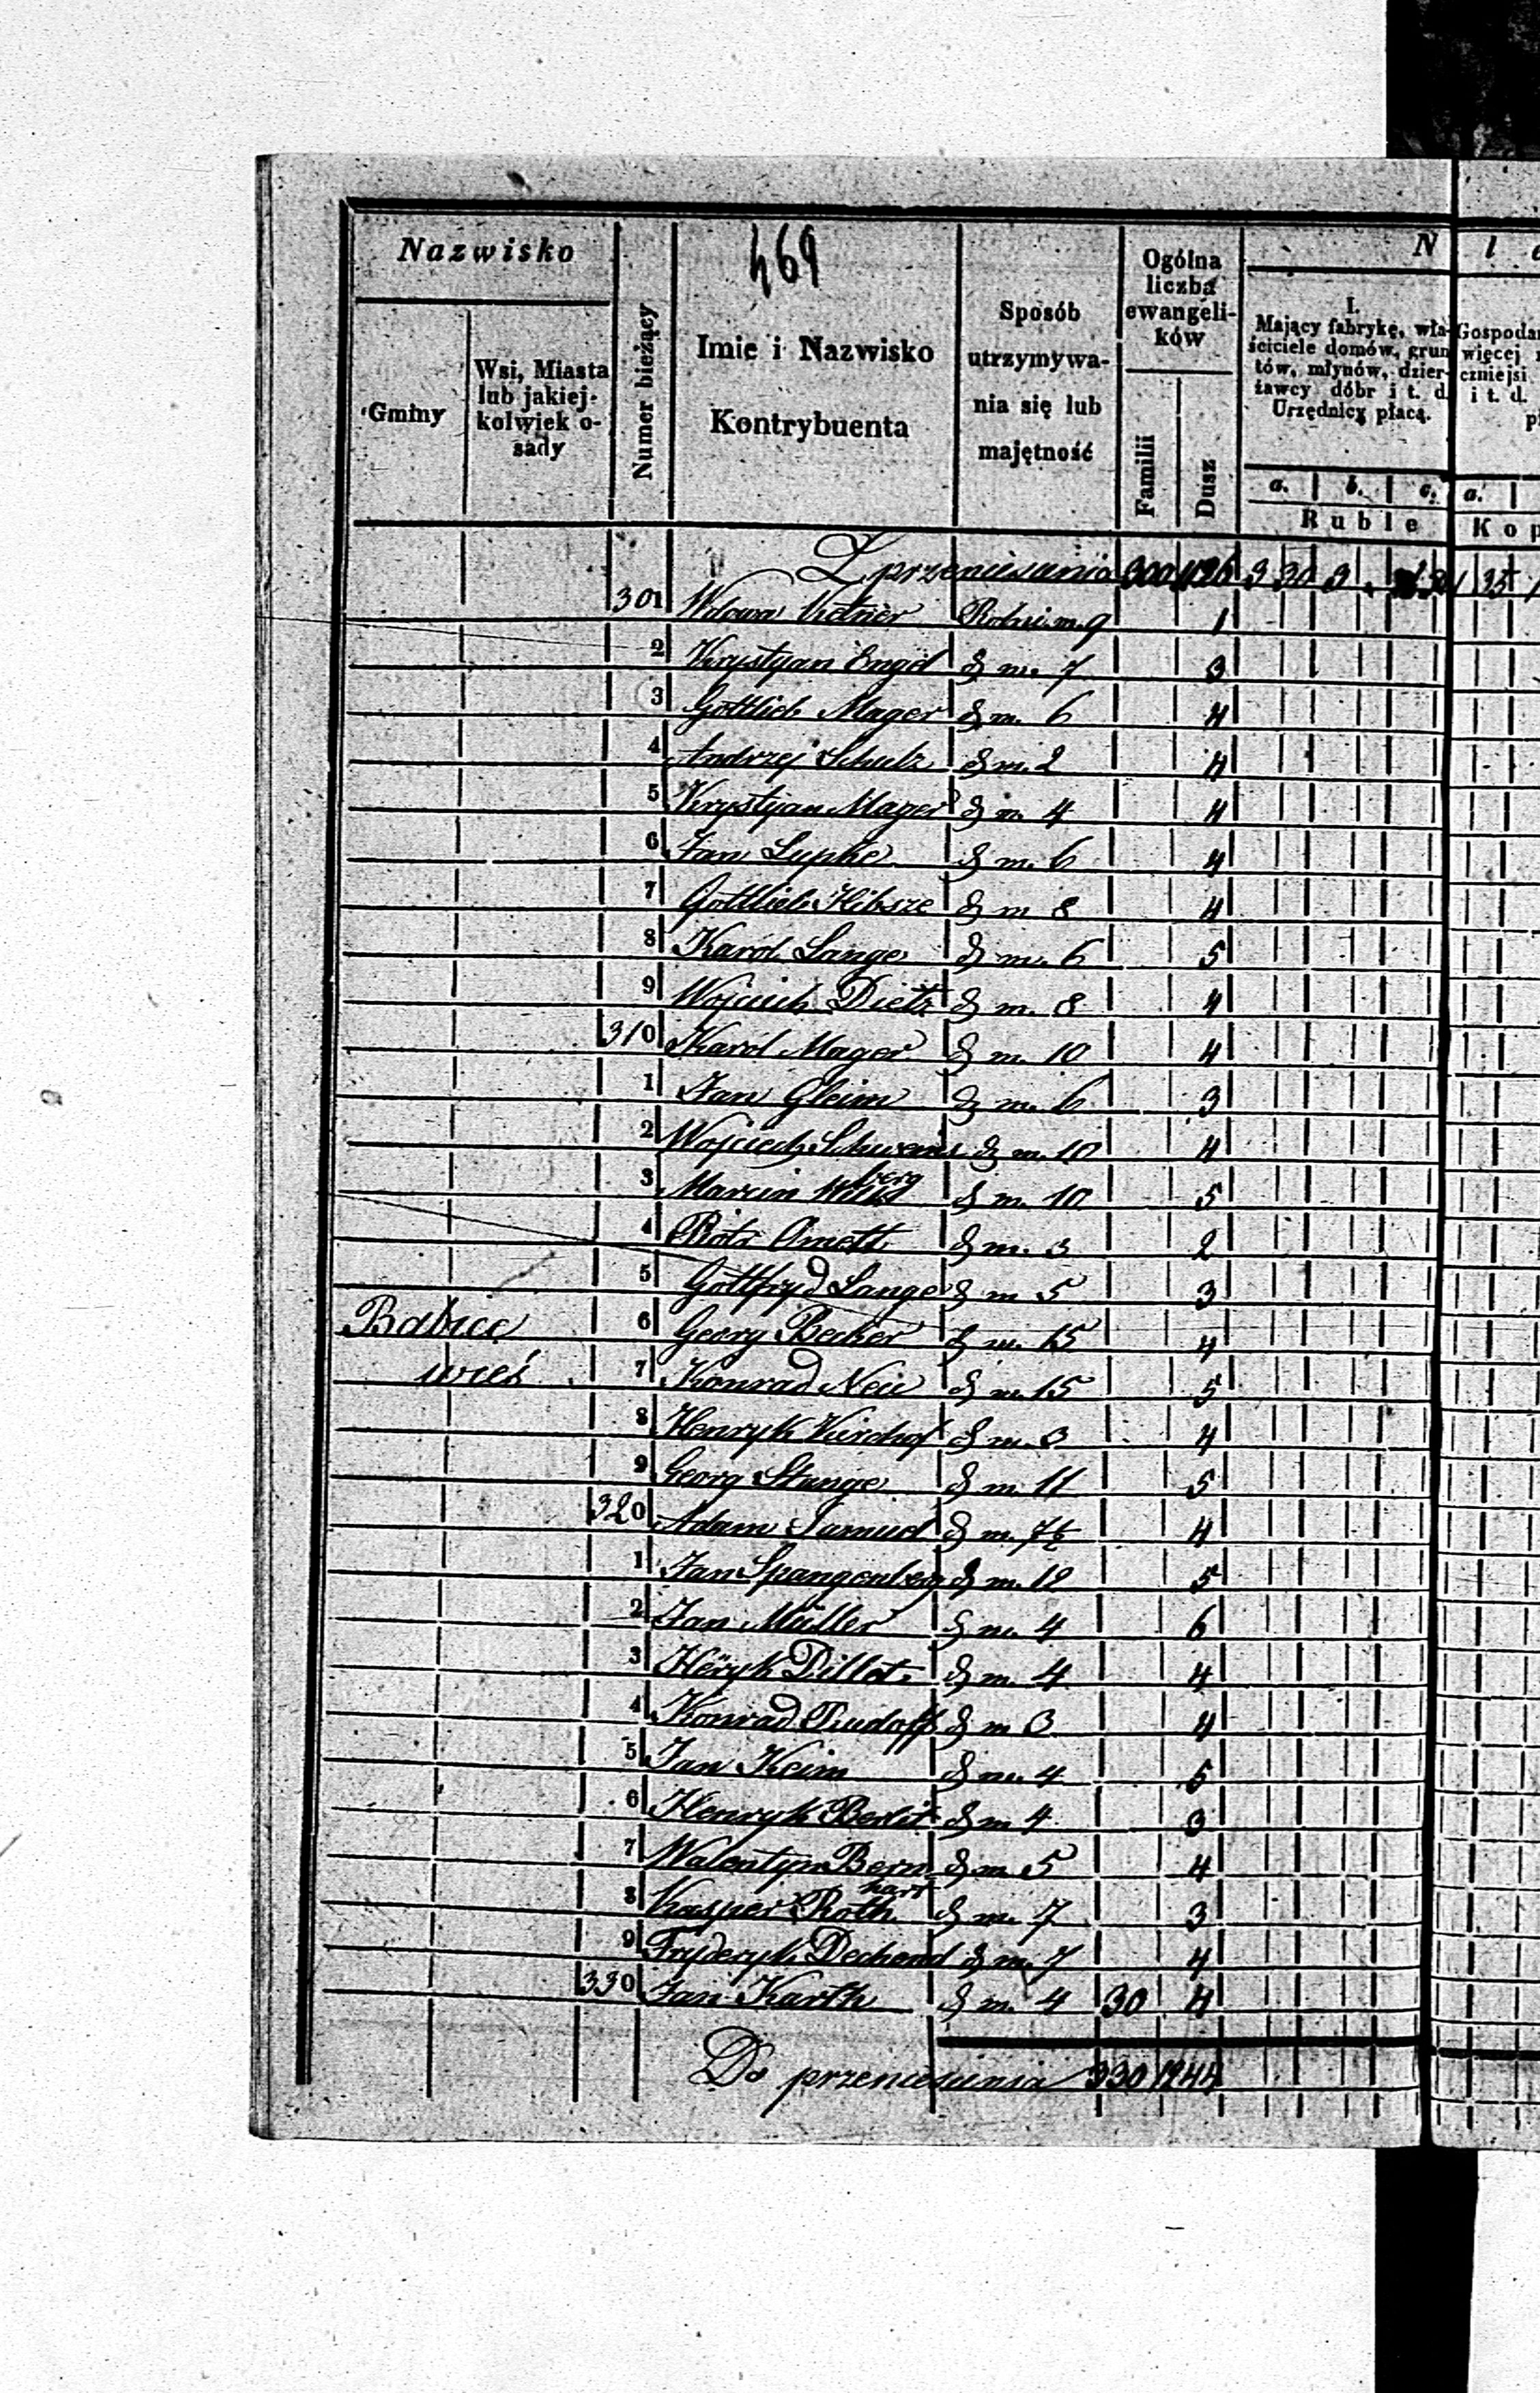 469
Nazwisko
Gminy
Wsi, Miasta lub jakiej-kolwiek o-sady
Numer bieżący
Imie i Nazwisko Kontrybuenta
Sposób utrzymywa-nia się lub majętność
Ogólna liczba ewangeli-ków
Familii
Dusz
N
I. Mający fabrykę, wła-ściciele domów, grun tów, młynów, dzier-żawcy dóbr i t. d. Urzędnicy płacą.
a. b. c.
Ruble
Z przeniesienia 300
301 Wdowa Ketner Rolni m. 9 1
2 Krystyan Engel d m. 7 3
3 Gottlieb Mager d m. 6 4
4 Andrzej Schulz d m. 2 4
5 Krystyan Mager d m. 4 4
6 Jan Lupke d m. 6 4
7 Gottlieb Hibsze d m 8 4
8 Karol Lange d m. 6 5
9 Wojciech Dietz d m. 8 4
310 Karól Mager d m. 10 4
1 Jan Gleim d m. 6 3
2 Wojciech d m. 10 4
3 Marcin berg d m. 10 5
4 Piotr d m. 3 2
5 Gottfryd Lange d m 5 3
Babice 6 Georg Becker d m. 15 4
wieś 7 Konrad Neu d m. 15 5
8 Henryk Kirchof d m. 3 4
9 Georg Stange d m 11 5
320 Adam d m. 7½ 4
1 Jan Spangenberg d m. 12 5
2 Jan Müller d m. 4 6
3 Heryk Dillot d m. 4 4
4 Konrad Rudolff d m 3 4
5 Jan Keim d m. 4 5
6 Henryk Berlit d m 4 3
7 Walentyn Bern d m. 5 4
hart
8 Kasper Roth d m. 7 3
9 Fryderyk Dechend d m. 7 4
330 Jan Karth d m. 4 30 4
Do przeniesienia 330 1244